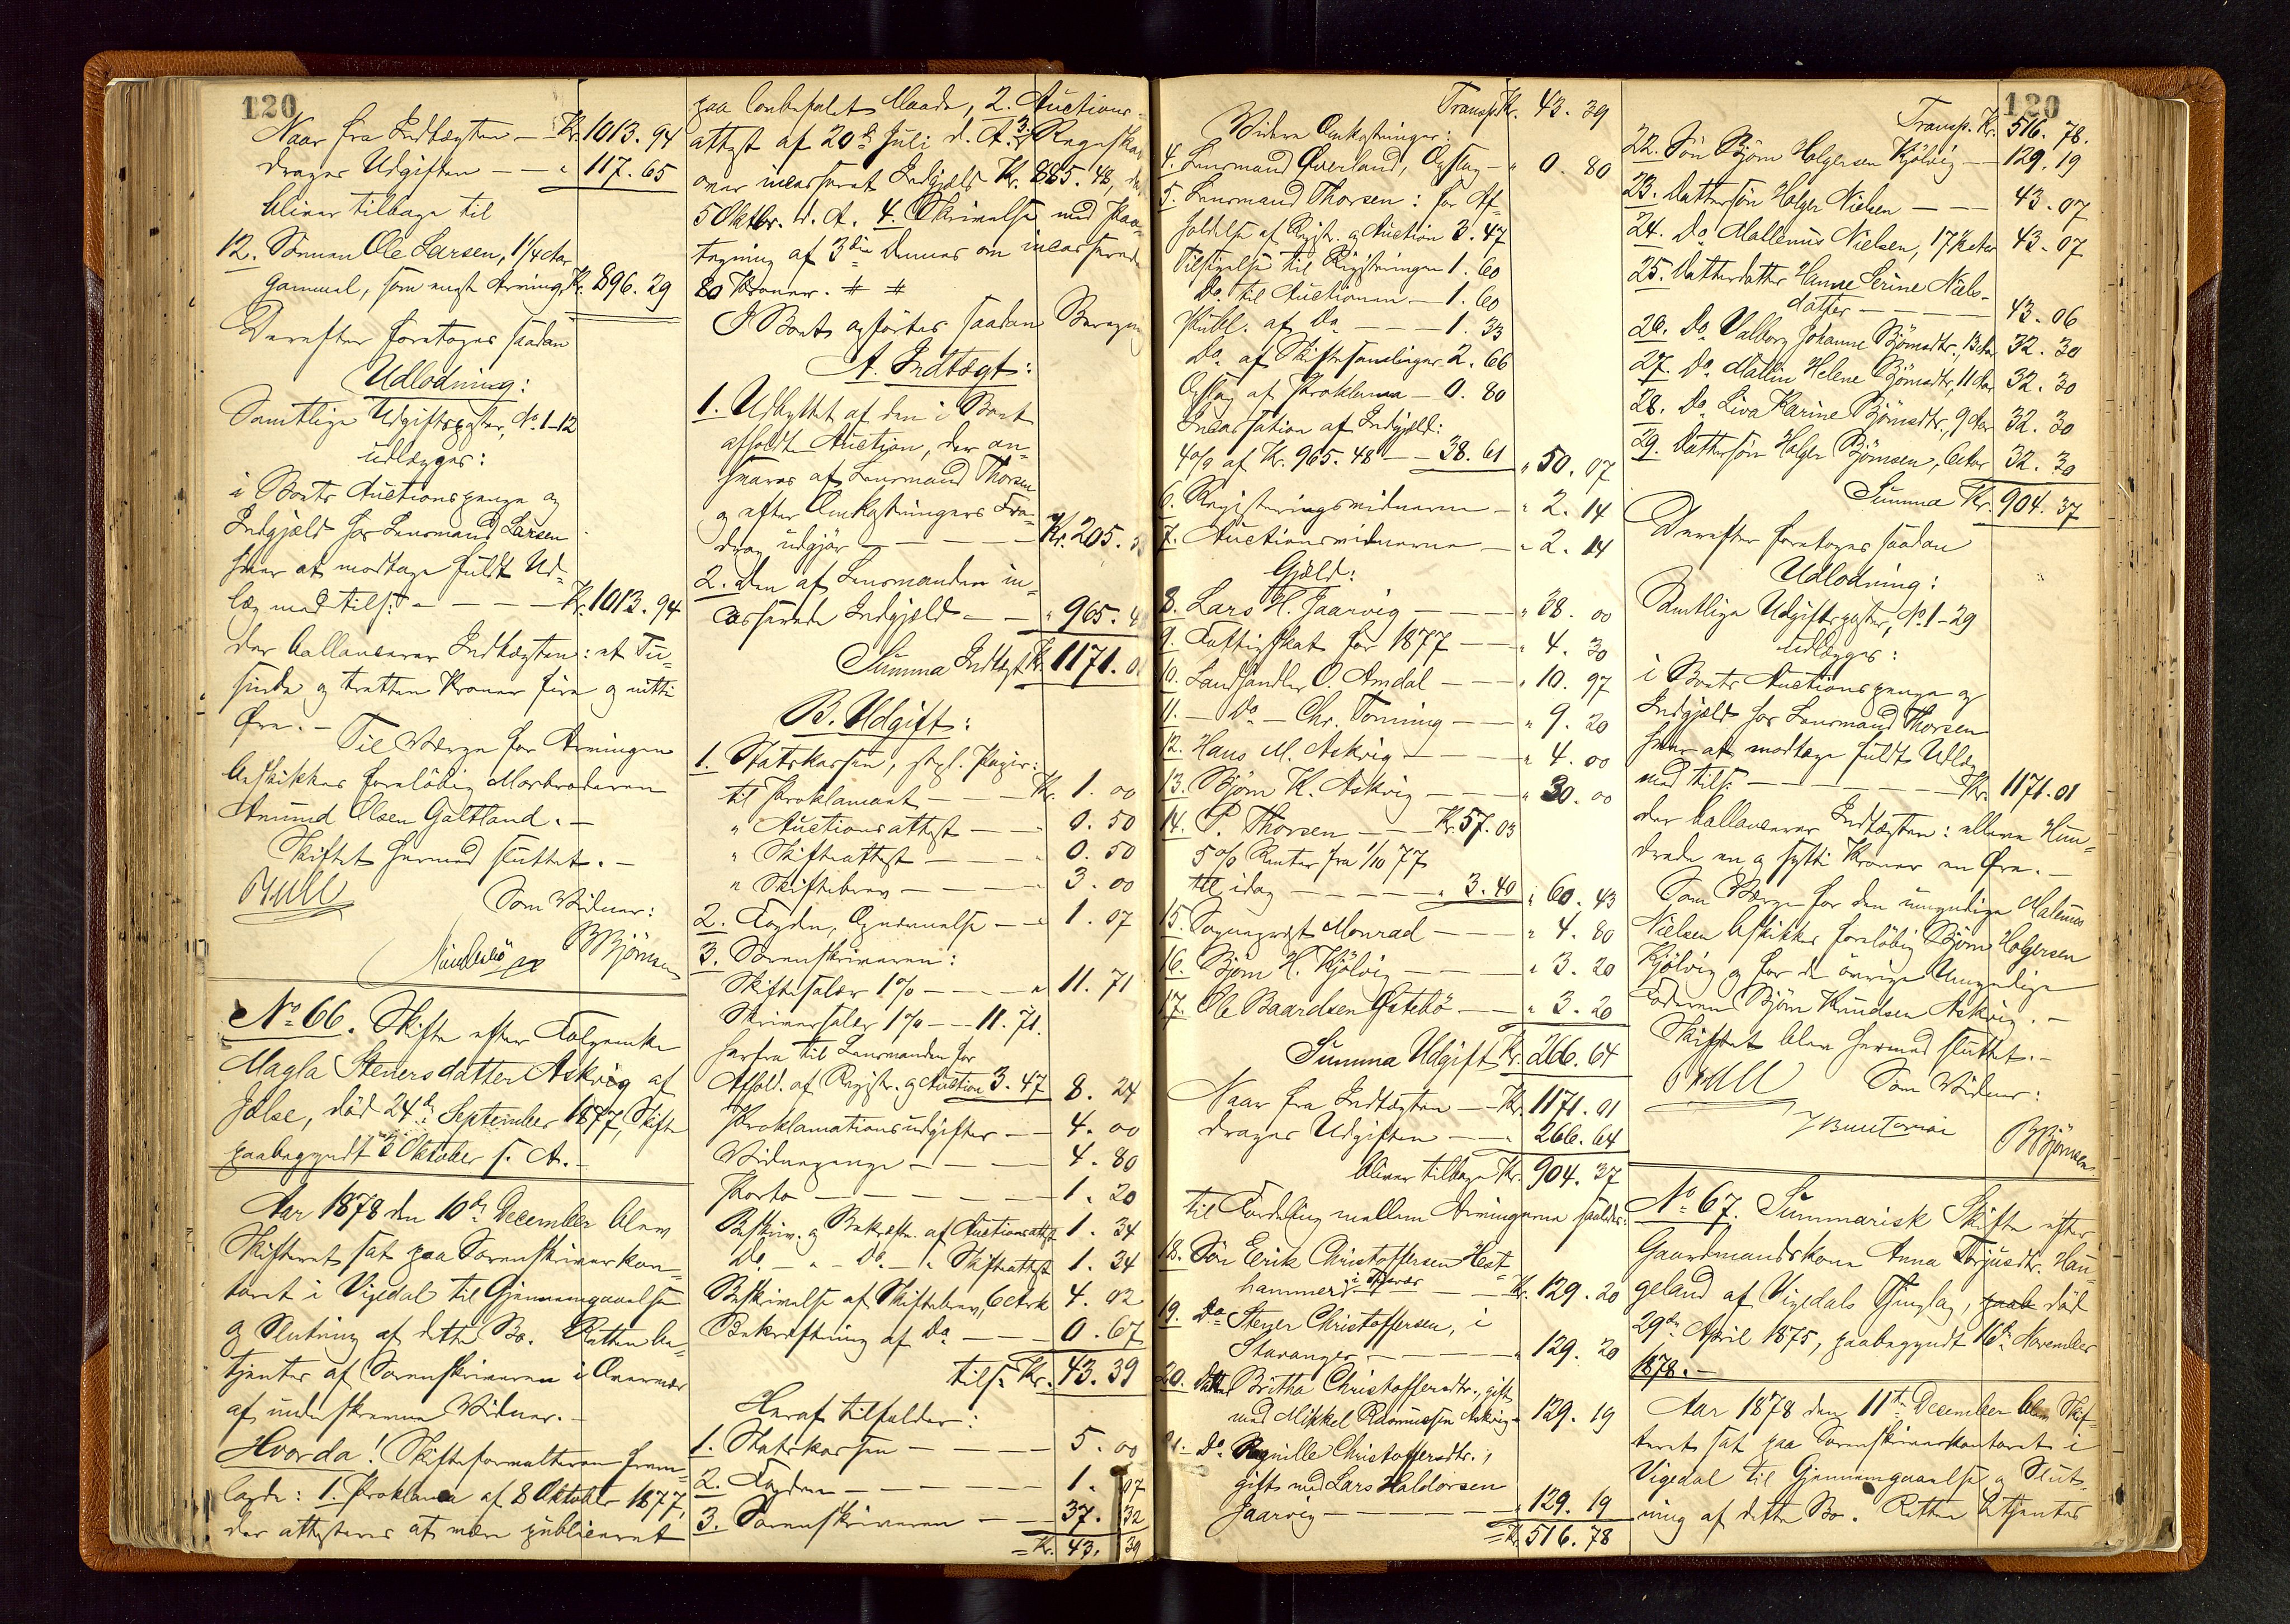 120
Naar fra Indtægten — Kr. 1013.94
drages Udgiften — — " 117.65
bliver tilbage til
12. Sønnen Ole Larsen, 1 1/4 Aar
gammel, som eneste Arving, Kr. 896.29
Derefter foretoges saadan
Udlodning:
Samtlige Udgiftsposter, No. 1–12
udlægges:
i Boets Auctionspenge og
Indgjæld hos Lensmand Larsen
hver at modtage fuldt Ud-
læg med tils: — — — Kr. 1013.94
der ballancerer Indtægten: et Tu-
sinde og tretten Kroner fire og nitti
Øre. —
Til Værge for Arvingen
beskikkes foreløbig Morbroderen
Amund Olsen Galtland. —
Skiftet hermed sluttet. —
Bull
Som Vidner:
BBjörnsen
No. 66. Skifte efter Folgeenke
Magla Stenersdatter Askvig af
Jelse, död 24de September 1877, Skifte
paabegyndt 3 Oktober s. A. —
Aar 1878 den 10de December blev
Skifteret sat paa Sorenskriverkon-
toret i Vigedal til Gjennemgaaelse
og Slutning af dette Bo. Retten be-
tjentes af Sorenskriveren i Overvær
af underskrevne Vidner. —
Hvorda! Skifteforvalteren frem-
lagde: 1. Proklama af 8 Oktober 1877,
der attesteres at være publiceret
paa lovbefalet Maade, 2. Auctions-
attest af 20de Juli d. A. 3. Regnskab
over incasseret Indgjæld Kr. 885.48, dat.
5 Oktbr. d. A. 4. Skrivelse med Paa-
tegning af 3die Dennes om incasserede
80 Kroner. # #
I Boet opførtes saadan Beregning
A. Indtægt:
1. Udbyttet af den i Boet
afholdte Auction, der an-
svares af Lensmand Thorsen
og efter Omkostningers Fra-
drag udgjør — — — Kr. 205.
2. Den af Lensmanden in-
casserede Indgjæld — — " 965.4
Summa Indtægt Kr. 1171.0
B. Udgift:
1. Statskassen, stpl. Papir:
til Proklamaet — — Kr. 1.00
" Auctionsattest — — 0.50
" Skifteattest — — — 0.50
" Skiftebrev — — — " 3.00
2. Fogden, Opnævnelse — " 1.07
3. Sorenskriveren:
Skiftesalær 1% — — — " 11.71
Skriversalær 1% — — 11.71.
herfra til Lensmanden for
Afhold. af Registr. og Auction 3.47 8.24
Proklamationsudgifter — — 4.00
Vidnepenge — — — 4.80
Porto — — — — — 1.20
Beskriv. og Bekræft. af Auctionsattest 1.34
Do. — " — Do. — " Skifteattest 1.34
Beskrivelse af Skiftebrev, 6 Ark 4.02
Bekræftning af Do. — — 0.67
tils. Kr. 43.39
Heraf tilfalder:
1. Statskassen — — — 5.00
2. Fogden — — — — — 1.07
3. Sorenskriveren — — 37.32
= Kr. 43.39
Transp. Kr. 43.39
Videre Omkostninger:
4. Lensmand Qverland, Opslag — " 0.80
5. Lensmand Thorsen: for Af-
holdelse af Registr. og Auction 3.47
Tilsigelse til Registreringen 1.60
Do. til Auctionen — 1.60
Publ. af Do. — — — 1.33
Do. af Skiftesamlinger 2.66
Opslag af Proklama — 0.80
Incassation af Indgjæld:
4% af Kr. 965.48 — — 38.61 " 50.07
6. Registreringsvidnerne — " 2.14
7. Auctionsvidnerne — — " 2.14
Gjæld:
8. Lars H. Jaarvig — — — " 38.00
9. Fattigskat for 1877 — — " 4.30
10. Landhandler O. Amdal — — " 10.97
11. — Do — Chr. Tonning — — " 9.20
12. Hans M. Askvig — — — " 4.00
13. Bjørn K. Askvig — — — " 30.00
14. P. Thorsen — — Kr. 57.03
5% Renter fra 1/10 77
til idag — — — — " 3.40 " 60.43
15. Sogneprest Monrad — — — " 4.80
16. Bjørn H. Kjölvig — — — " 3.20
17. Ole Baardsen Østebö — — " 3.20
Summa Udgift Kr. 266.64
Naar fra Indtægten — Kr. 1171.01
drages Udgiften — — " 266.64
bliver tilbage Kr. 904.37
til Fordeling mellem Arvingerne saaledes:
18. Søn Eerik Christoffersen Hest-
hammer i Tysvær — — Kr. 129.20
19. Do. Stener Christoffersen, i
Stavanger — — — — " 129.20
20. Datter Britha Christoffersdtr., gift
med Mikkel Rasmussen Askvig " 129.19
21. Do. Ragnille Christoffersdtr.,
gift med Lars Haldorsen
Jaarvig — — — — — " 129.19
= Kr. 516.78
120
Transp. Kr. 516.78.
22. Søn Bjørn Holgersen Kjölvig — — 129.19
23. Dattersøn Holger Nielsen — — — 43.07
24. Do. Mallenus Nielsen, 17 1/2 Aar 43.07
25. Datterdatter Hanne Serine Niels-
datter — — — — 43.06
26. Do. Valborg Johanne Bjørnsdtr., 13 Aar 32.30
27. Do. Mallin Helene Bjørnsdtr., 11 Aar 32.30
28. Do. Liva Karine Bjørnsdtr., 9 Aar 32.30
29. Dattersøn Holger Bjørnsen, 6 Aar 32.30
Summa Kr. 904.37
Derefter foretoges saadan
Udlodning:
Samtlige Udgiftsposter, No. 1–29
udlægges:
i Boets Auctionspenge og
Indgjæld hos Lensmand Thorsen
hver at modtage fuldt Udlæg
med tils. — — — — — — Kr. 1171.01
der ballancerer Indtægten: elleve Hun-
drede en og sytti Kroner en Øre. —
Som Værge for den umyndige Malenus
Nielsen beskikkes foreløbig Bjørn Holgersen
Kjölvig og for de øvrige Umyndige
Faderen Bjørn Knudsen Askvig. —
Skiftet blev hermed sluttet. —
Bull
Som Vidner:
BBjörnsen
No. 67. Summarisk Skifte efter
Gaardmandskone Anna Torjusdtr. Hau-
geland af Vigedals Thinglag, død
29de April 1875, paabegyndt 16de November
1878. —
Aar 1878 den 11te December blev Skif-
teret sat paa Sorenskriverkontoret i
Vigedal til Gjennemgaaelse og Slut-
ning af dette Bo. Retten betjentes